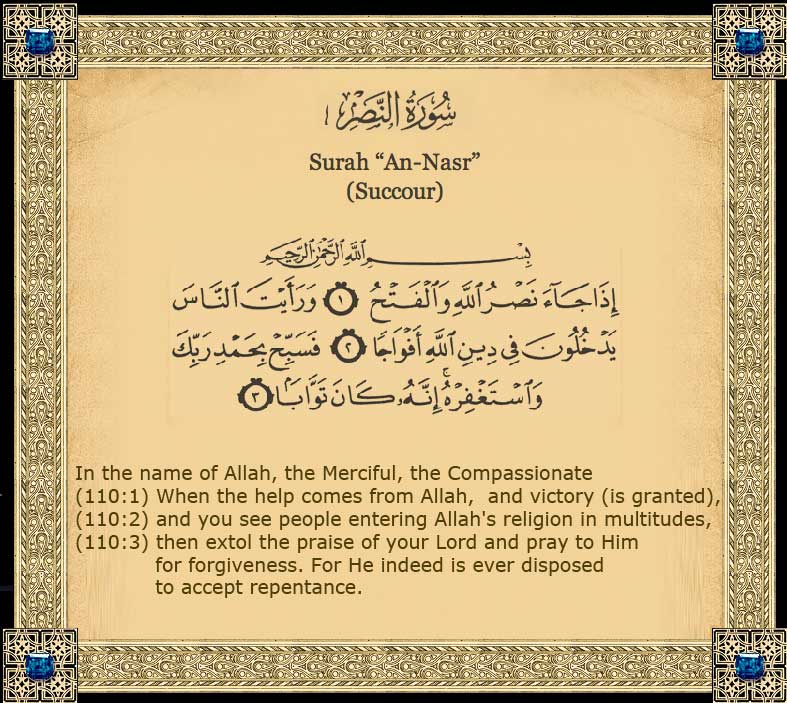 سُورَةُ النَّصْرِ
Surah “An-Nasr”
(Succour)
بِسْمِ اللَّهِ الرَّحْمَٰنِ الرَّحِيمِ
إِذَا جَآءَ نَصْرُ اللَّهِ وَالْفَتْحُ ١ وَرَأَيْتَ النَّاسَ
يَدْخُلُونَ فِي دِينِ اللَّهِ أَفْوَاجًا ٢ فَسَبِّحْ بِحَمْدِ رَبِّكَ
وَاسْتَغْفِرْهُ ۚ إِنَّهُۥ كَانَ تَوَّابًا ٣
In the name of Allah, the Merciful, the Compassionate
(110:1) When the help comes from Allah, and victory (is granted),
(110:2) and you see people entering Allah's religion in multitudes,
(110:3) then extol the praise of your Lord and pray to Him
for forgiveness. For He indeed is ever disposed
to accept repentance.